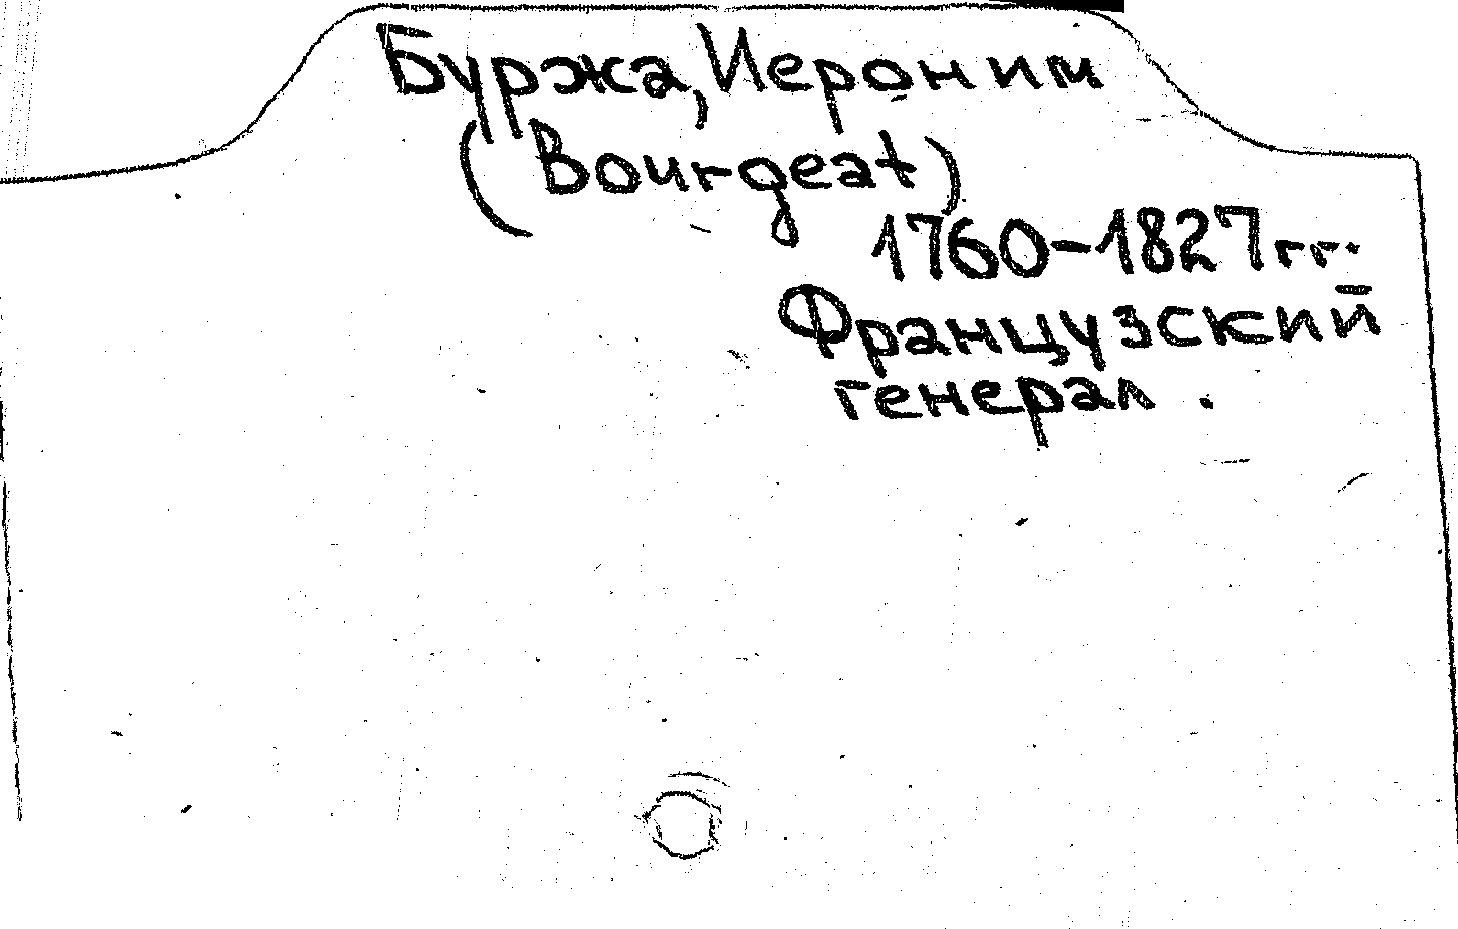 Буржа, Иероним
(Bourgeat)
1760-1827гг.
Французский
генерал.